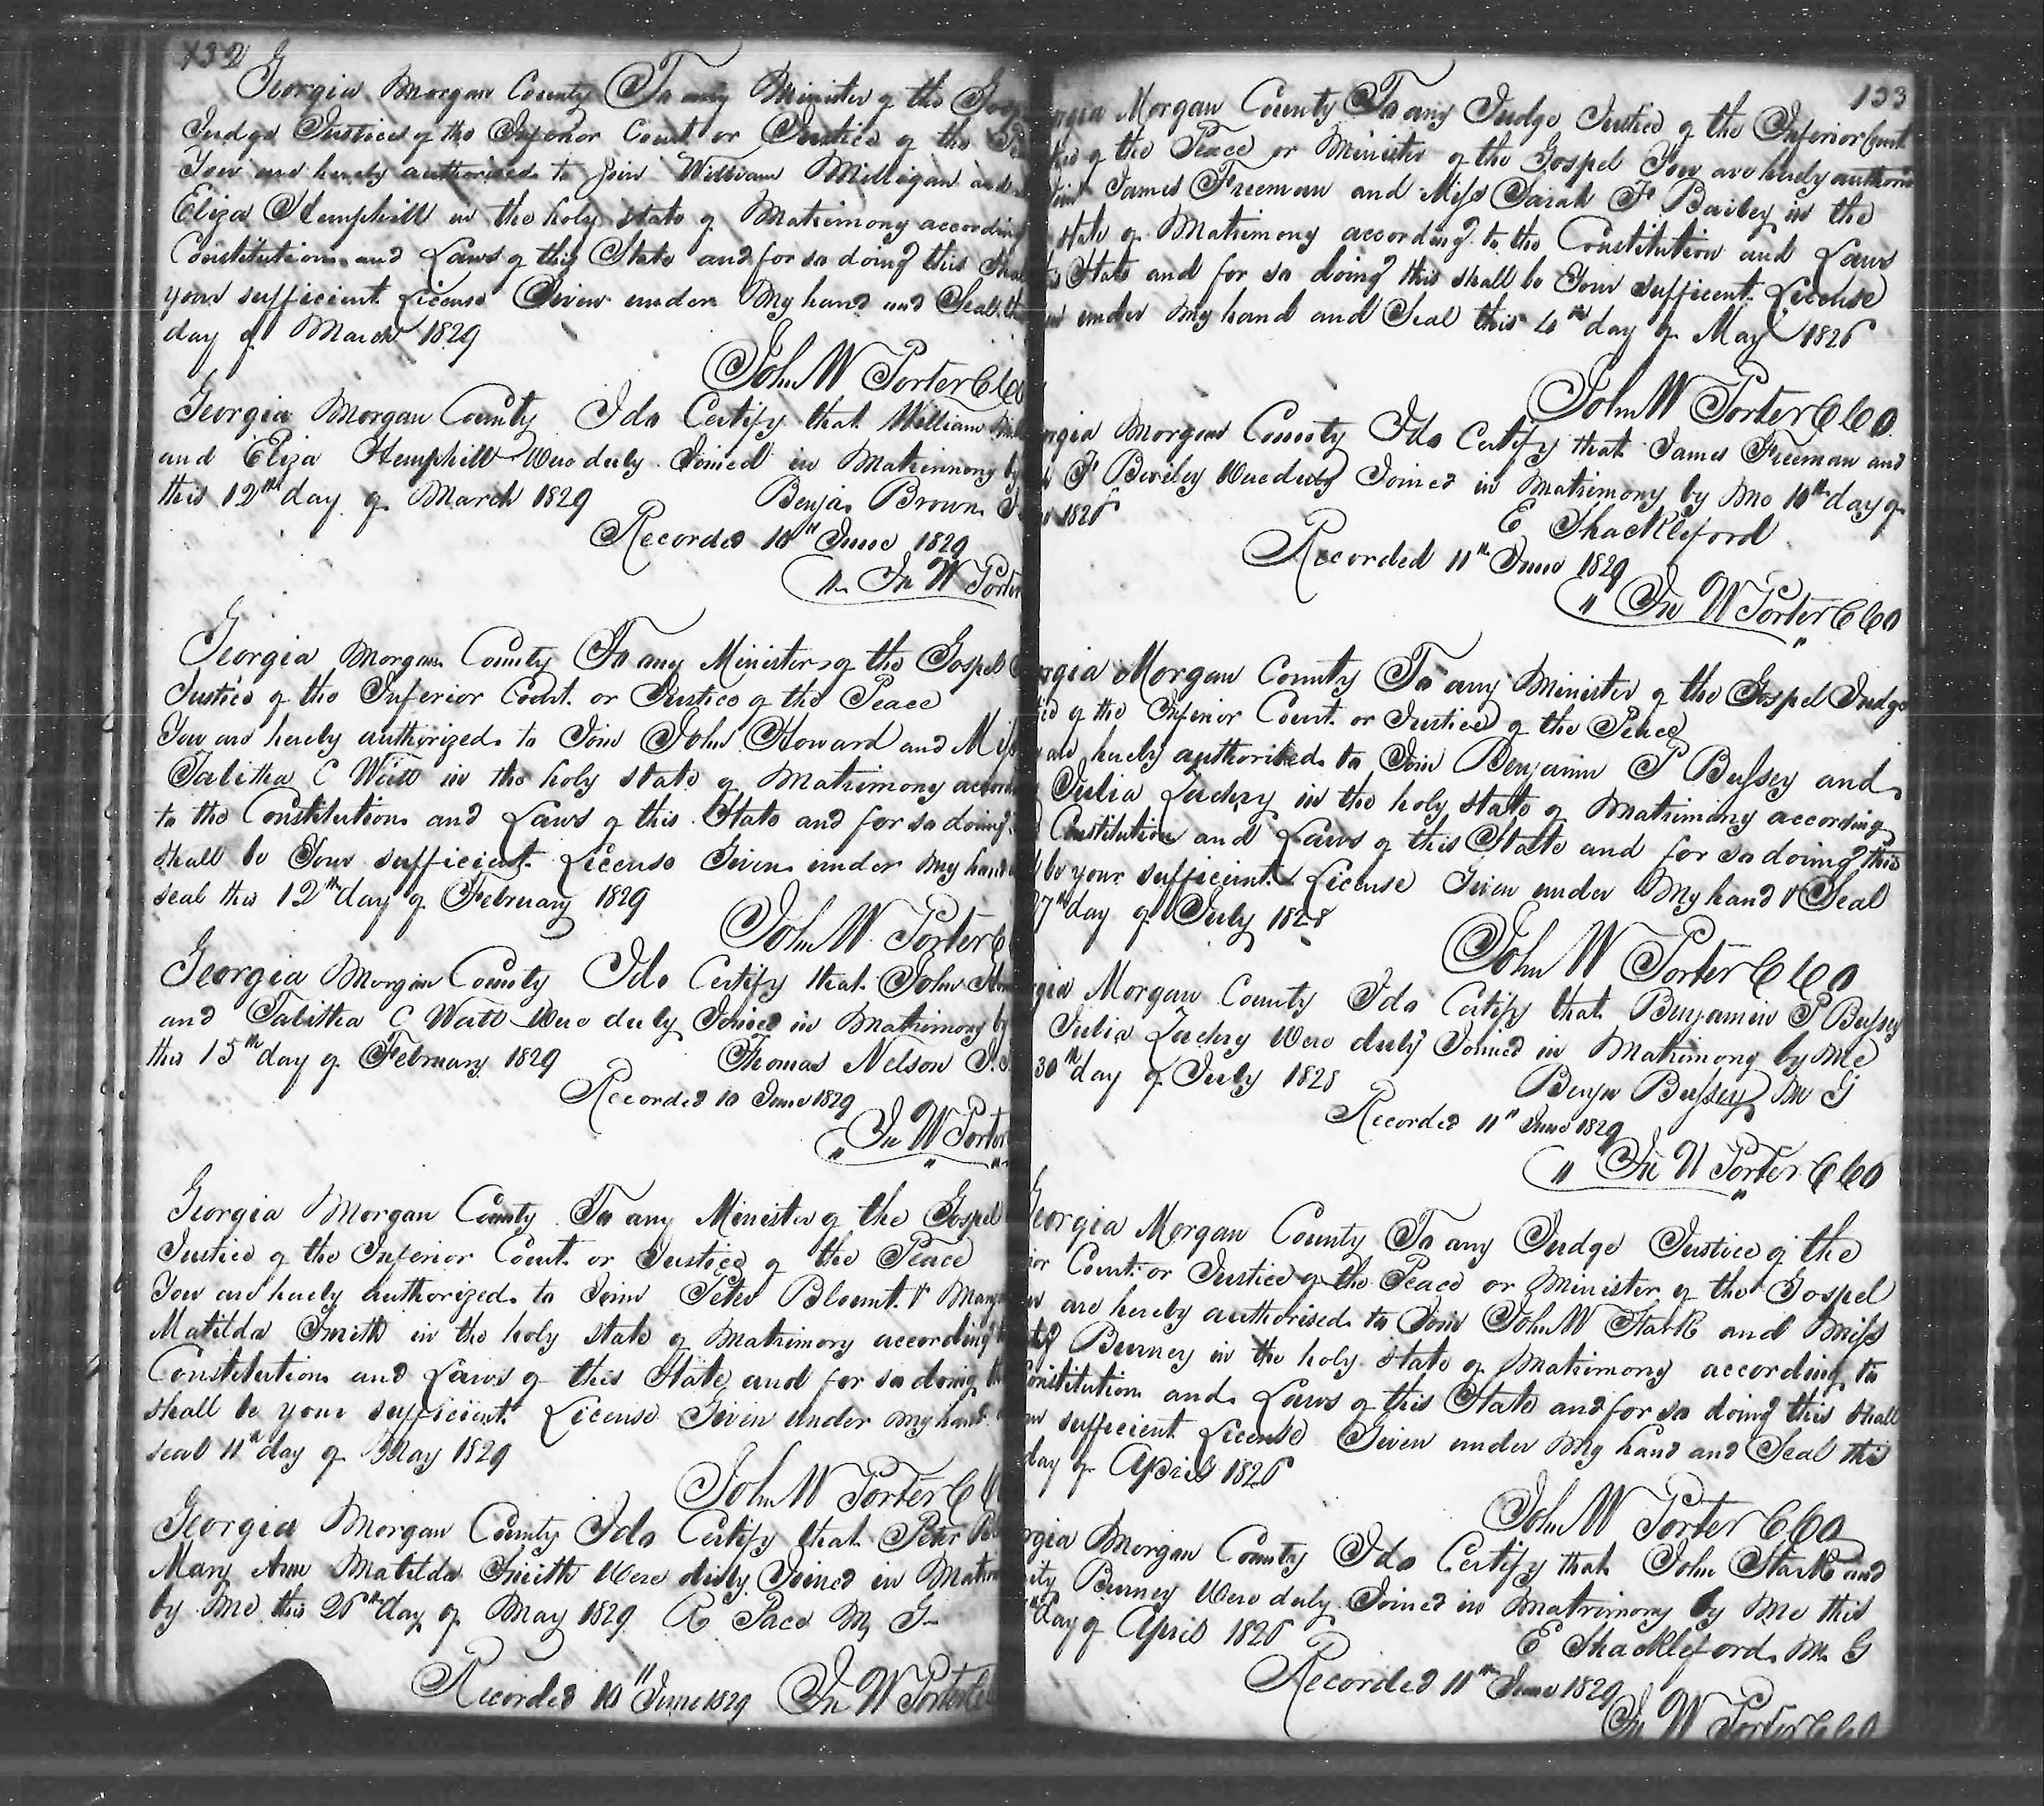 132
Georgia Morgan County To any Minister of the Gosp
Judge Justice of the Inferior Court or Justice of the Pea
You are hereby authorised to Join William Milligan and
Eliza Hemphill in the holy state of Matrimony according
Constitution and Laws of this State and for so doing this shall
your sufficient License Given under My hand and Seal th
day of March 1829
John W Porter CCO
Georgia Morgan County I do Certify that William Mil
and Eliza Hemphill Were duly Joined in Matrimony by
this 12th day of March 1829 Benja. Brown J
Recorded 10th June 1829
Jn W Porter
Georgia Morgan County To any Minister of the Gospel
Justice of the Inferior Court or Justice of the Peace
You are hereby authorized to Join John Howard and Miss
Tabitha C Watt in the holy state of Matrimony accord
to the Constitution and Laws of this State and for so doing
shall be Your sufficient License Given under My hand
seal this 12th day of February 1829
John W Porter C
Georgia Morgan County I do Certify that John How
and Tabitha C Watt Were duly Joined in Matrimony by
this 15th day of February 1829 Thomas Nelson J.
Recorded 10 June 1829
Jn W Porter
Georgia Morgan County To any Minister of the Gospel
Justice of the Inferior Court or Justice of the Peace
You are hereby authorized to Join Peter Blount & Mary
Matilda Smith in the holy state of Matrimony according
Constitution and Laws of this State and for so doing th
shall be your sufficient License Given under My hand
seal 11th day of May 1829
John W Porter CC
Georgia Morgan County I do Certify that Peter Bl
Mary Ann Matilda Smith Were duly Joined in Matrim
by Me this 26th day of May 1829 R Pace M G
Recorded 10th June 1829 Jn W Porter
133
rgia Morgan County To any Judge Justice of the Inferior Court
tice of the Peace or Minister of the Gospel You are hereby authoris
Join James Freeman and Miss Sarah F Bailey in the
state of Matrimony according to the Constitution and Laws
is State and for so doing this shall be Your sufficent License
en under My hand and Seal this 4th day of May 1826
John W Porter CCO
rgia Morgan County I do Certify that James Freeman and
F Baviley Were duly Joined in Matrimony by Me 10th day of
1826
E Shackleford
Recorded 11th June 1829
Jn W Porter CCO
rgia Morgan County To any Minister of the Gospel Judge
tice of the Inferior Court or Justice of the Peace
are hereby authorised to Join Benjamin P Bussey and
Julia Zachry in the holy state of Matrimony according
Constitution and Laws of this State and for so doing this
be your sufficient License Given under My hand & Seal
27th day of July 1828
John W Porter CCO
rgia Morgan County I do Certify that Benjamin P Bussey
Julia Zachry Were duly Joined in Matrimony by Me
30th day of July 1828
Benjn Bussey M G
Recorded 11th June 1829
Jn W Porter CCO
Georgia Morgan County To any Judge Justice of the
ior Court or Justice of the Peace or Minister of the Gospel
are hereby authorised to Join John W Stark and Miss
Burney in the holy state of Matrimony according to
Constitution and Laws of this State and for so doing this shall
sufficient License Given under My hand and Seal this
day of April 1826
John W Porter CCO
rgia Morgan County I do Certify that John Stark and
ity Burney Were duly Joined in Matrimony by Me this
day of April 1826
E Shackleford M G
Recorded 11th June 1829
Jn W Porter CCO